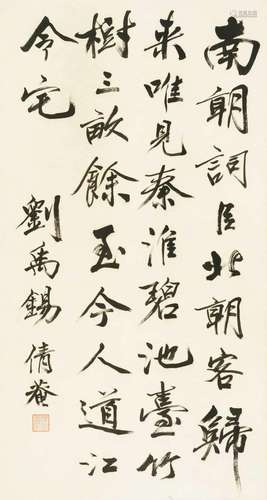 南朝詞臣北朝客歸
来唯見秦淮碧池臺竹
樹三畝餘至今人道江
令宅 劉禹錫 倩菴